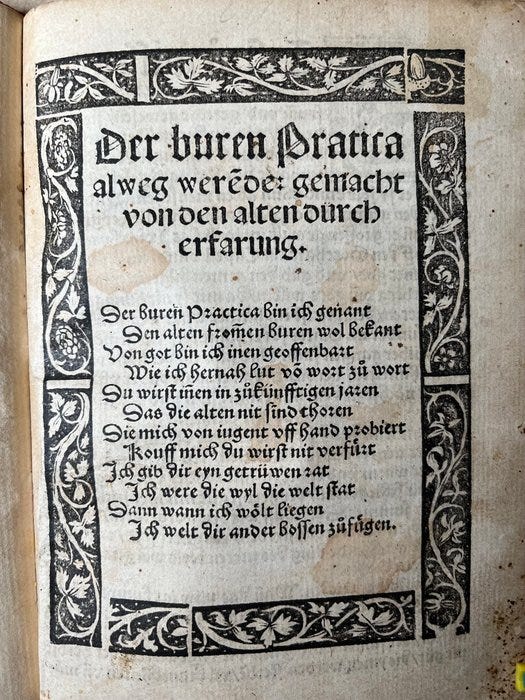 Der buren Pratica
alweg werēder gemacht
von den alten durch
erfarung.
Der buren Practica bin ich genant
Den alten from̄en buren wol bekant
Von got bin ich inen geoffenbart
Wie ich hernah lut vō wort zů wort
Du wirst iñen in zůkünfftigen jaren
Das die alten nit sind thoren
Die mich von iugent vff hand probiert
Kouff mich du wirst nit verfürt
Ich gib dir eyn getrüwen rat
Ich were die wyl die welt stat
Dann wann ich wölt liegen
Ich welt dir ander bossen zůfügen.